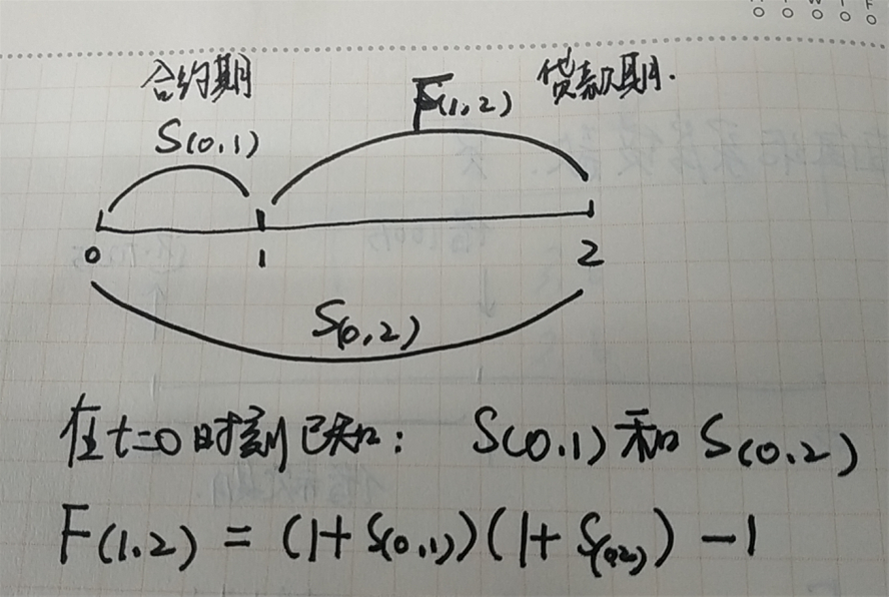 合约期
F(1,2)
贷款期.
S(0,1)
0
1
2
S(0,2)
在t=0时刻已知: S(0,1)和S(0,2)
F(1,2) = (1+S(0,1))(1+S(0,2)) -1